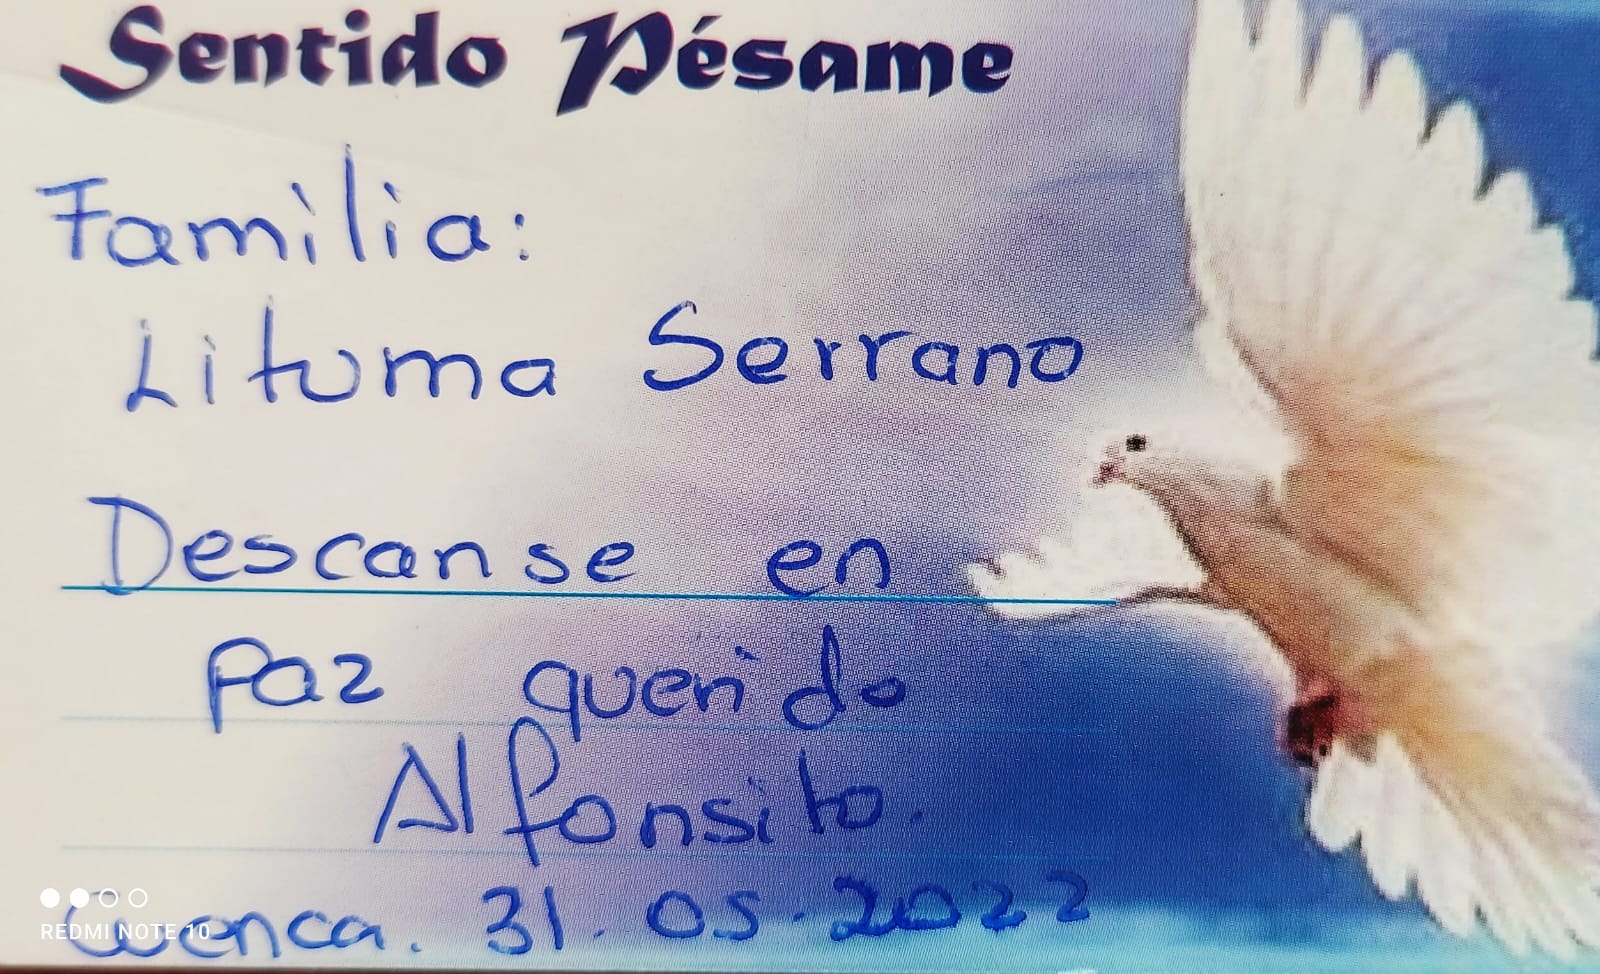 Sentido Pésame
Familia:
Lituma Serrano
Descanse en
Paz querido
Alfonsito.
Cuenca. 31. 05. 2022
REDMI NOTE 10